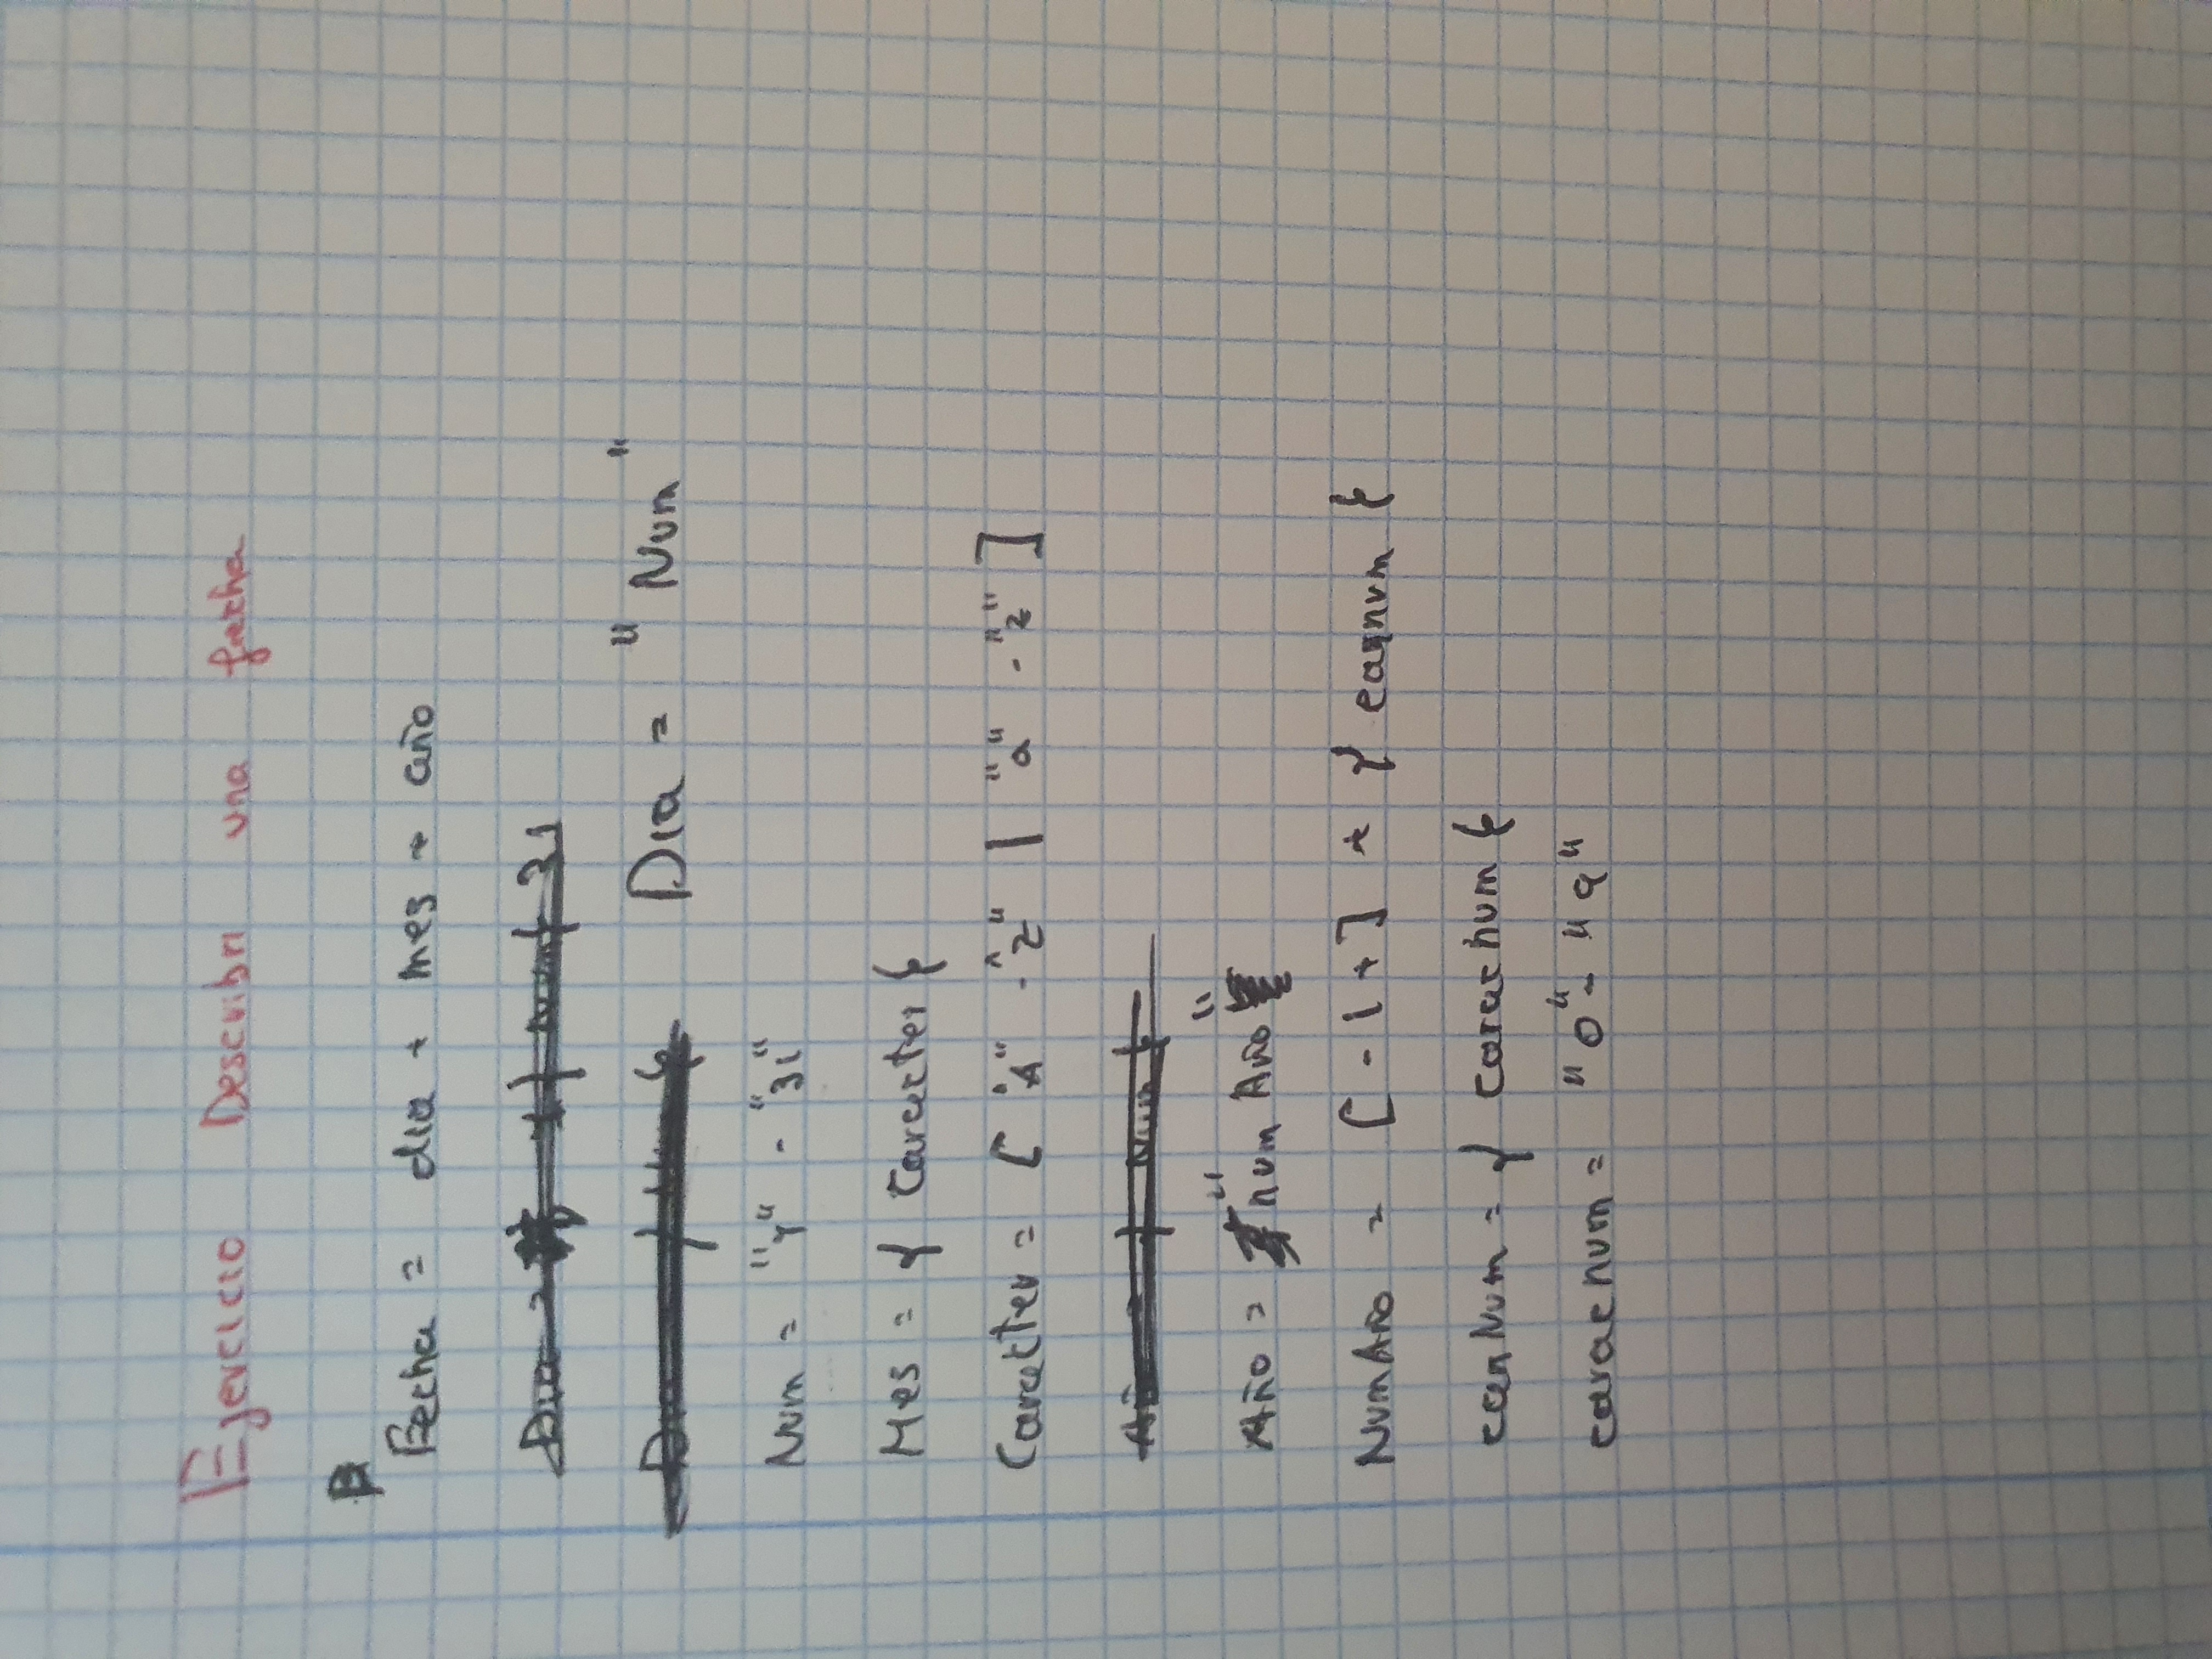 Ejercicio Describri una fecha
Fecha = dia + mes + año
Dia = } Num { 31
Dia } Num { Dia = " Num "
Num = "1" - "31"
Mes = { Caracter }
Caracter = [ "A" - "Z" | "a" - "z" ]
Año = { Num }
Año = "num Año"
NumAño = [ - | + ] + { carnum }
carNum = { caracnum }
caracnum = "0" - "9"